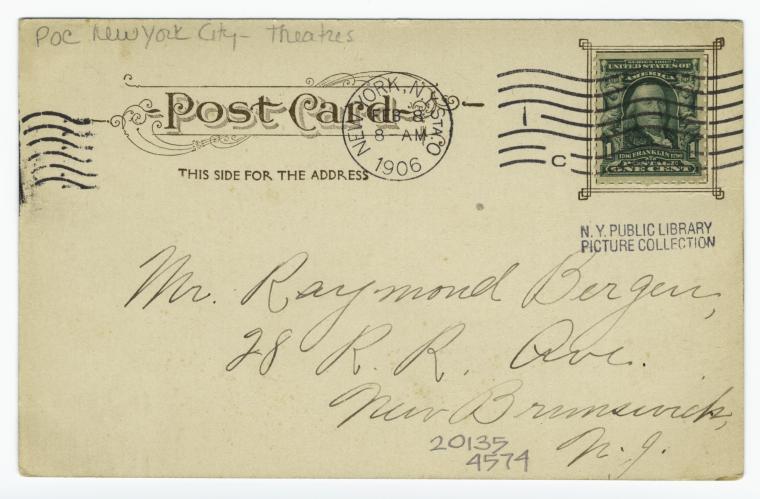 POC New York City - Theatres
Post Card
NEW YORK, N.Y. STA.O
FEB 8
8 - AM
1906
1
C
SERIES 1902
UNITED STATES OF
AMERICA
1
1706 FRANKLIN 1790
POSTAGE
ONE CENT
THIS SIDE FOR THE ADDRESS
N.Y. PUBLIC LIBRARY
PICTURE COLLECTION
Mr. Raymond Bergen,
28 R. R. Ave.
New Brunswick,
N. J.
20135
4574